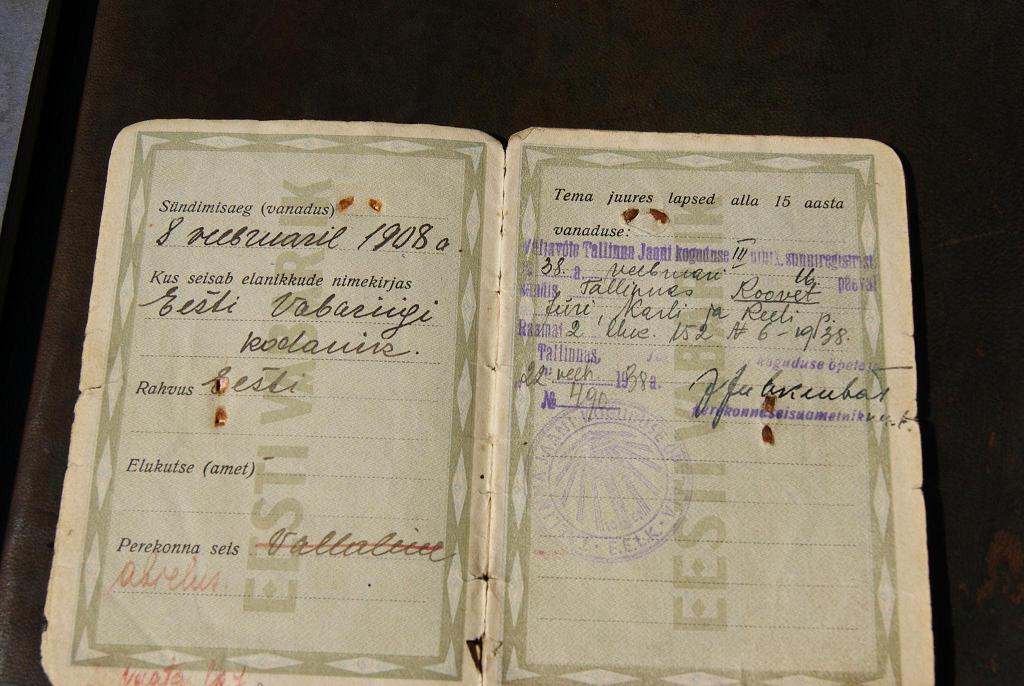 Sündimisaeg (vanadus)
8 veebruaril 1908 a.
Kus seisab elanikkude nimekirjas
Eesti Vabariigi
kodanik.
Rahvus Eesti
Elukutse (amet)
Perekonna seis Vallaline
abielus.
vaata lk 7
EESTI VABARIIK
Tema juures lapsed alla 15 aasta
vanaduse:
Väljavõte Tallinna Jaani koguduse III sünniregistrist
38. a. veebruari 16 päeval
sündis Tallinnas Roovet
Jüri, Karli ja Reeti p.
Raamat 2 lhk. 152 № 6 - 1938.
Tallinnas, koguduse õpetaja
22 veeb. 1938 a.
perekonnaseisuametnik
№ 490
JAANI KOGUDUSE E.E.L.K.
EESTI VABARIIK